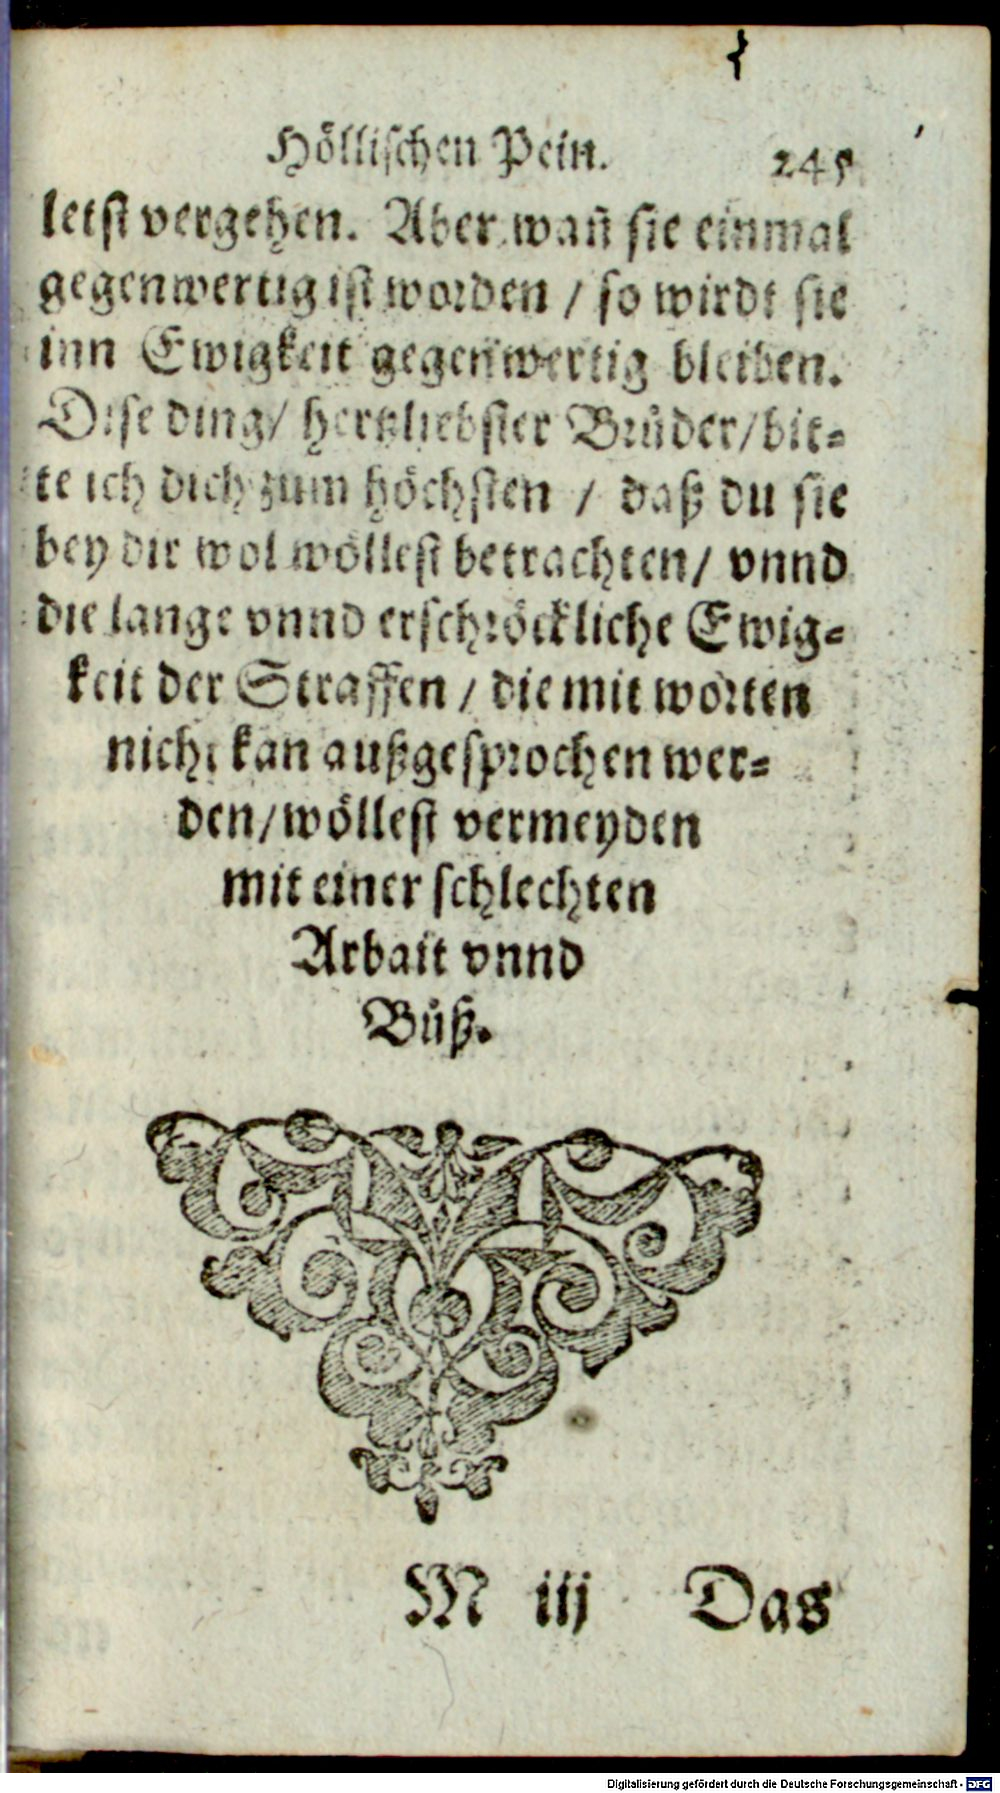 Höllischen Pein. 245
letst vergehen. Aber wañ sie einmal
gegenwertig ist worden / so wirdt sie
inn Ewigkeit gegenwertig bleiben.
Dise ding/ hertzliebster Brůder/bit-
te ich dich zum höchsten / daß du sie
bey dir wol wöllest betrachten/ vnnd
die lange vnnd erschröckliche Ewig-
keit der Straffen / die mit worten
nicht kan außgesprochen wer-
den/wöllest vermeyden
mit einer schlechten
Arbait vnnd
Bůß.
M iij Das
Digitalisierung gefördert durch die Deutsche Forschungsgemeinschaft - DFG